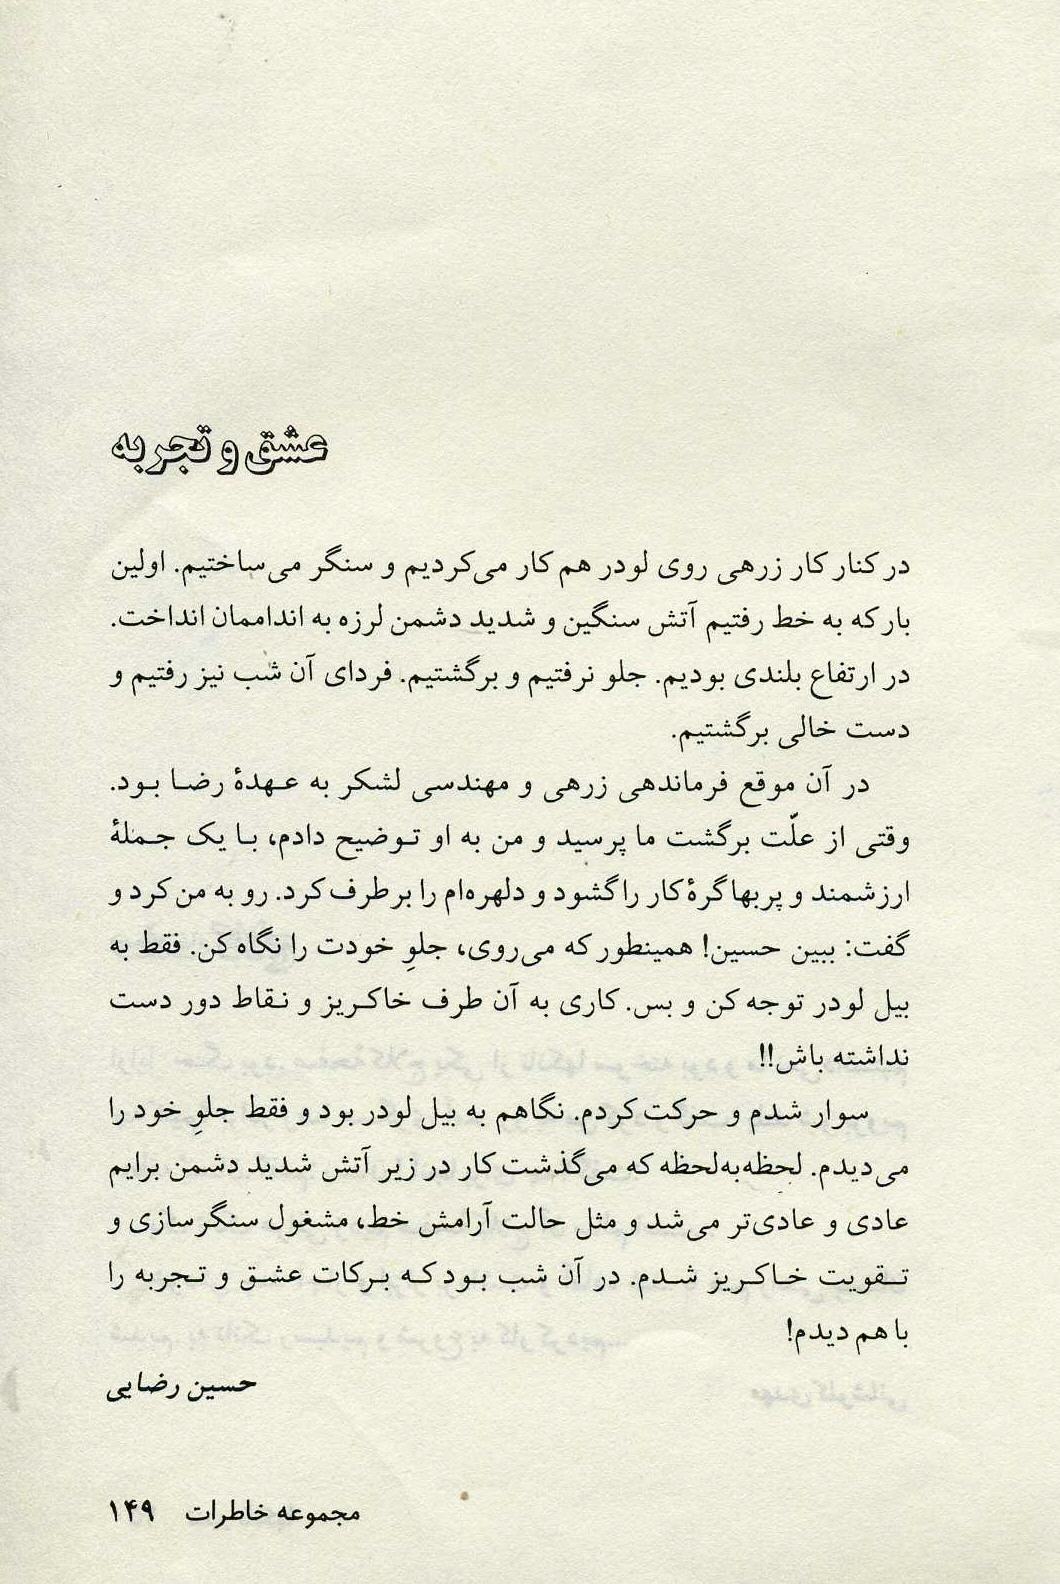 عشق و تجربه
در کنار کار زرهی روی لودر هم کار می‌کردیم و سنگر می‌ساختیم. اولین
بار که به خط رفتیم آتش سنگین و شدید دشمن لرزه به انداممان انداخت.
در ارتفاع بلندی بودیم. جلو نرفتیم و برگشتیم. فردای آن شب نیز رفتیم و
دست خالی برگشتیم.
در آن موقع فرماندهی زرهی و مهندسی لشکر به عهدهٔ رضا بود.
وقتی از علّت برگشت ما پرسید و من به او توضیح دادم، با یک جملهٔ
ارزشمند و پربها گرهٔ کار را گشود و دلهره‌ام را برطرف کرد. رو به من کرد و
گفت: ببین حسین! همینطور که می‌روی، جلوِ خودت را نگاه کن. فقط به
بیل لودر توجه کن و بس. کاری به آن طرف خاکریز و نقاط دور دست
نداشته باش!!
سوار شدم و حرکت کردم. نگاهم به بیل لودر بود و فقط جلوِ خود را
می‌دیدم. لحظه‌به‌لحظه که می‌گذشت کار در زیر آتش شدید دشمن برایم
عادی و عادی‌تر می‌شد و مثل حالت آرامش خط، مشغول سنگرسازی و
تقویت خاکریز شدم. در آن شب بود که برکات عشق و تجربه را
با هم دیدم!
حسین رضایی
مجموعه خاطرات ۱۴۹